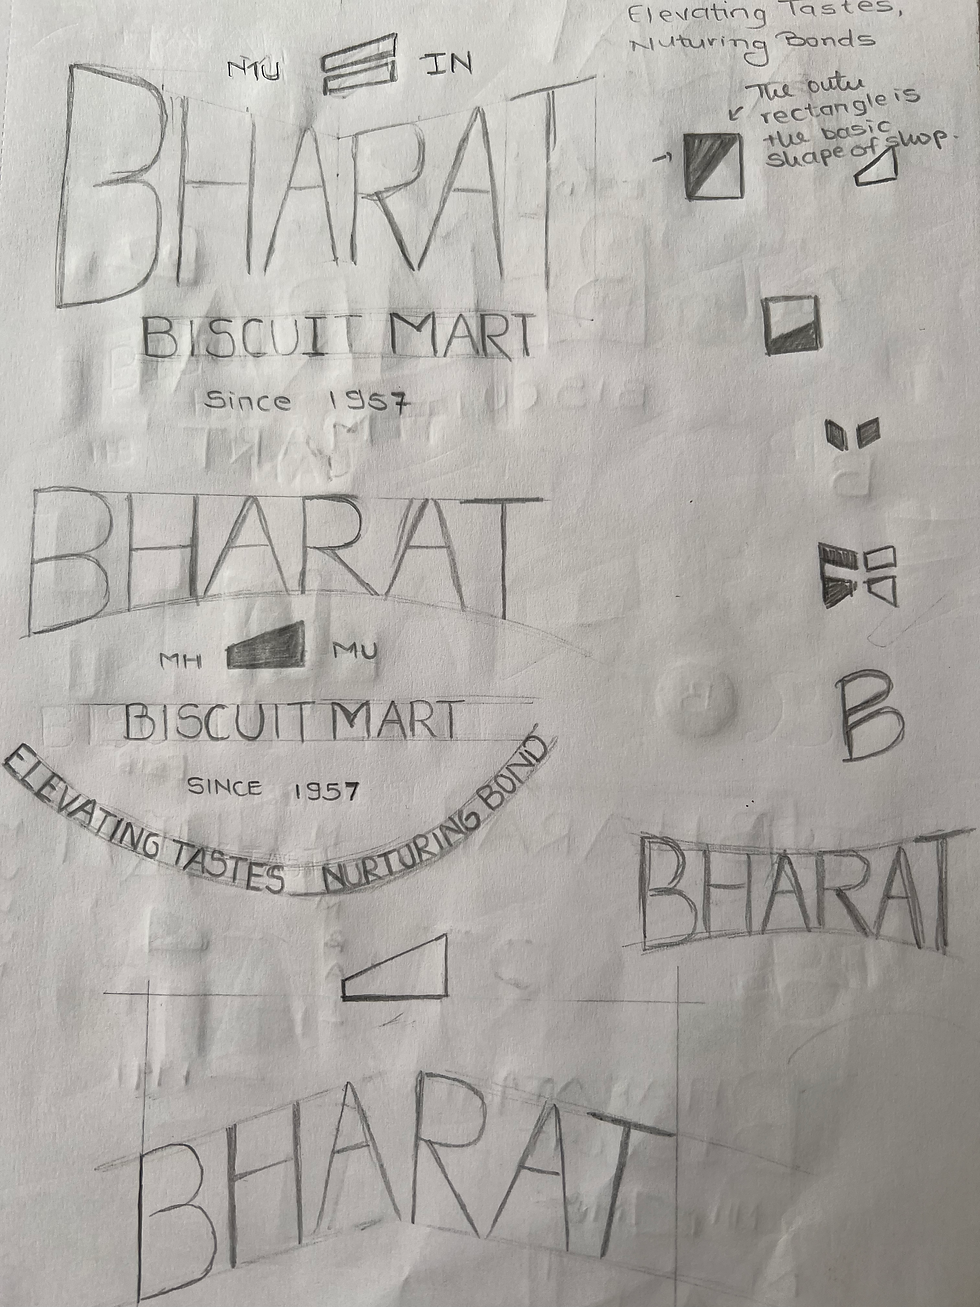 Elevating Tastes,
Nuturing Bonds
MU IN
BHARAT
The outer
rectangle is
the basic
shape of shop.
BISCUIT MART
Since 1957
BHARAT
MH MU
B
BISCUIT MART
SINCE 1957
ELEVATING TASTES NURTURING BOND
BHARAT
BHARAT